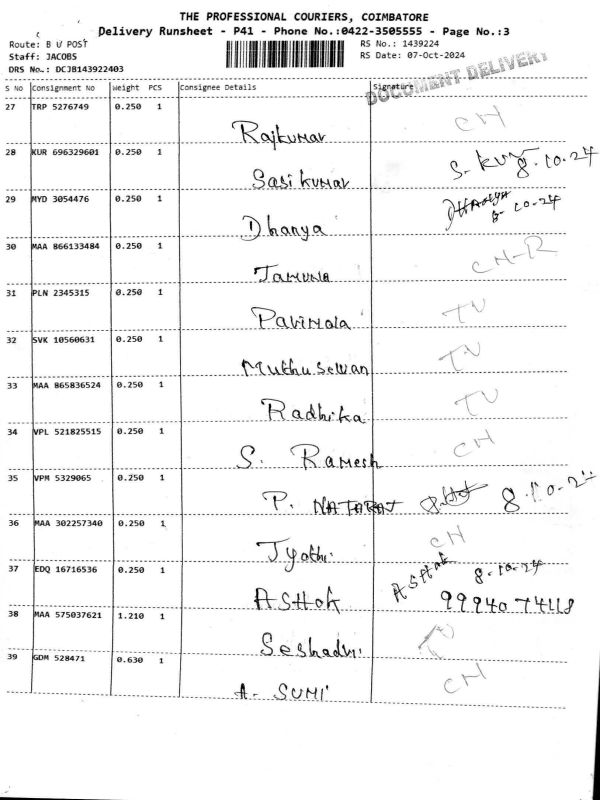 THE PROFESSIONAL COURIERS, COIMBATORE
Delivery Runsheet - P41 - Phone No.:0422-3505555 - Page No.:3
Route: B U POST RS No.: 1439224
Staff: JACOB5 RS Date: 07-Oct-2024
DRS No.: DCJB143922403
DOCUMENT DELIVERY
S No Consignment No Weight PCS Consignee Details Signature
27 TRP 5276749 0.250 1
Rajkumar CH
28 KUR 696329601 0.250 1
Sasikumar S. Kum 8.10.24
29 MYD 3054476 0.250 1
Dhanya Dhanya 8-10-24
30 MAA 866133484 0.250 1
Jamuna CH-R
31 PLN 2345315 0.250 1
Parimala TU
32 SVK 10560631 0.250 1
Muthu Selvan TU
33 MAA 865836524 0.250 1
Radhika TU
34 VPL 521825515 0.250 1
S. Ramesh CH
35 VPM 5329065 0.250 1
P. NATARAJ 8.10-24
36 MAA 302257340 0.250 1
Jyothi CH
37 EDQ 16716536 0.250 1
ASHOK ASHOK 8-10-24
99940 74118
38 MAA 575037621 1.210 1
Seshadri TU
39 GDM 528471 0.630 1
A. SUMI CH